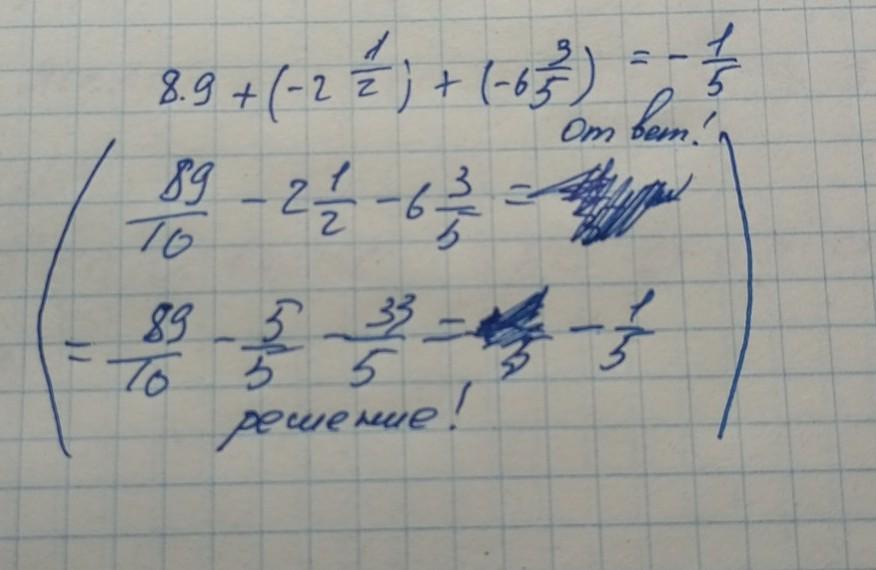 8.9 + (-2 1/2) + (-6 3/5) = - 1/5
ответ!
89/10 - 2 1/2 - 6 3/5 =
= 89/10 - 5/5 - 33/5 = /5 - 1/5
решение!